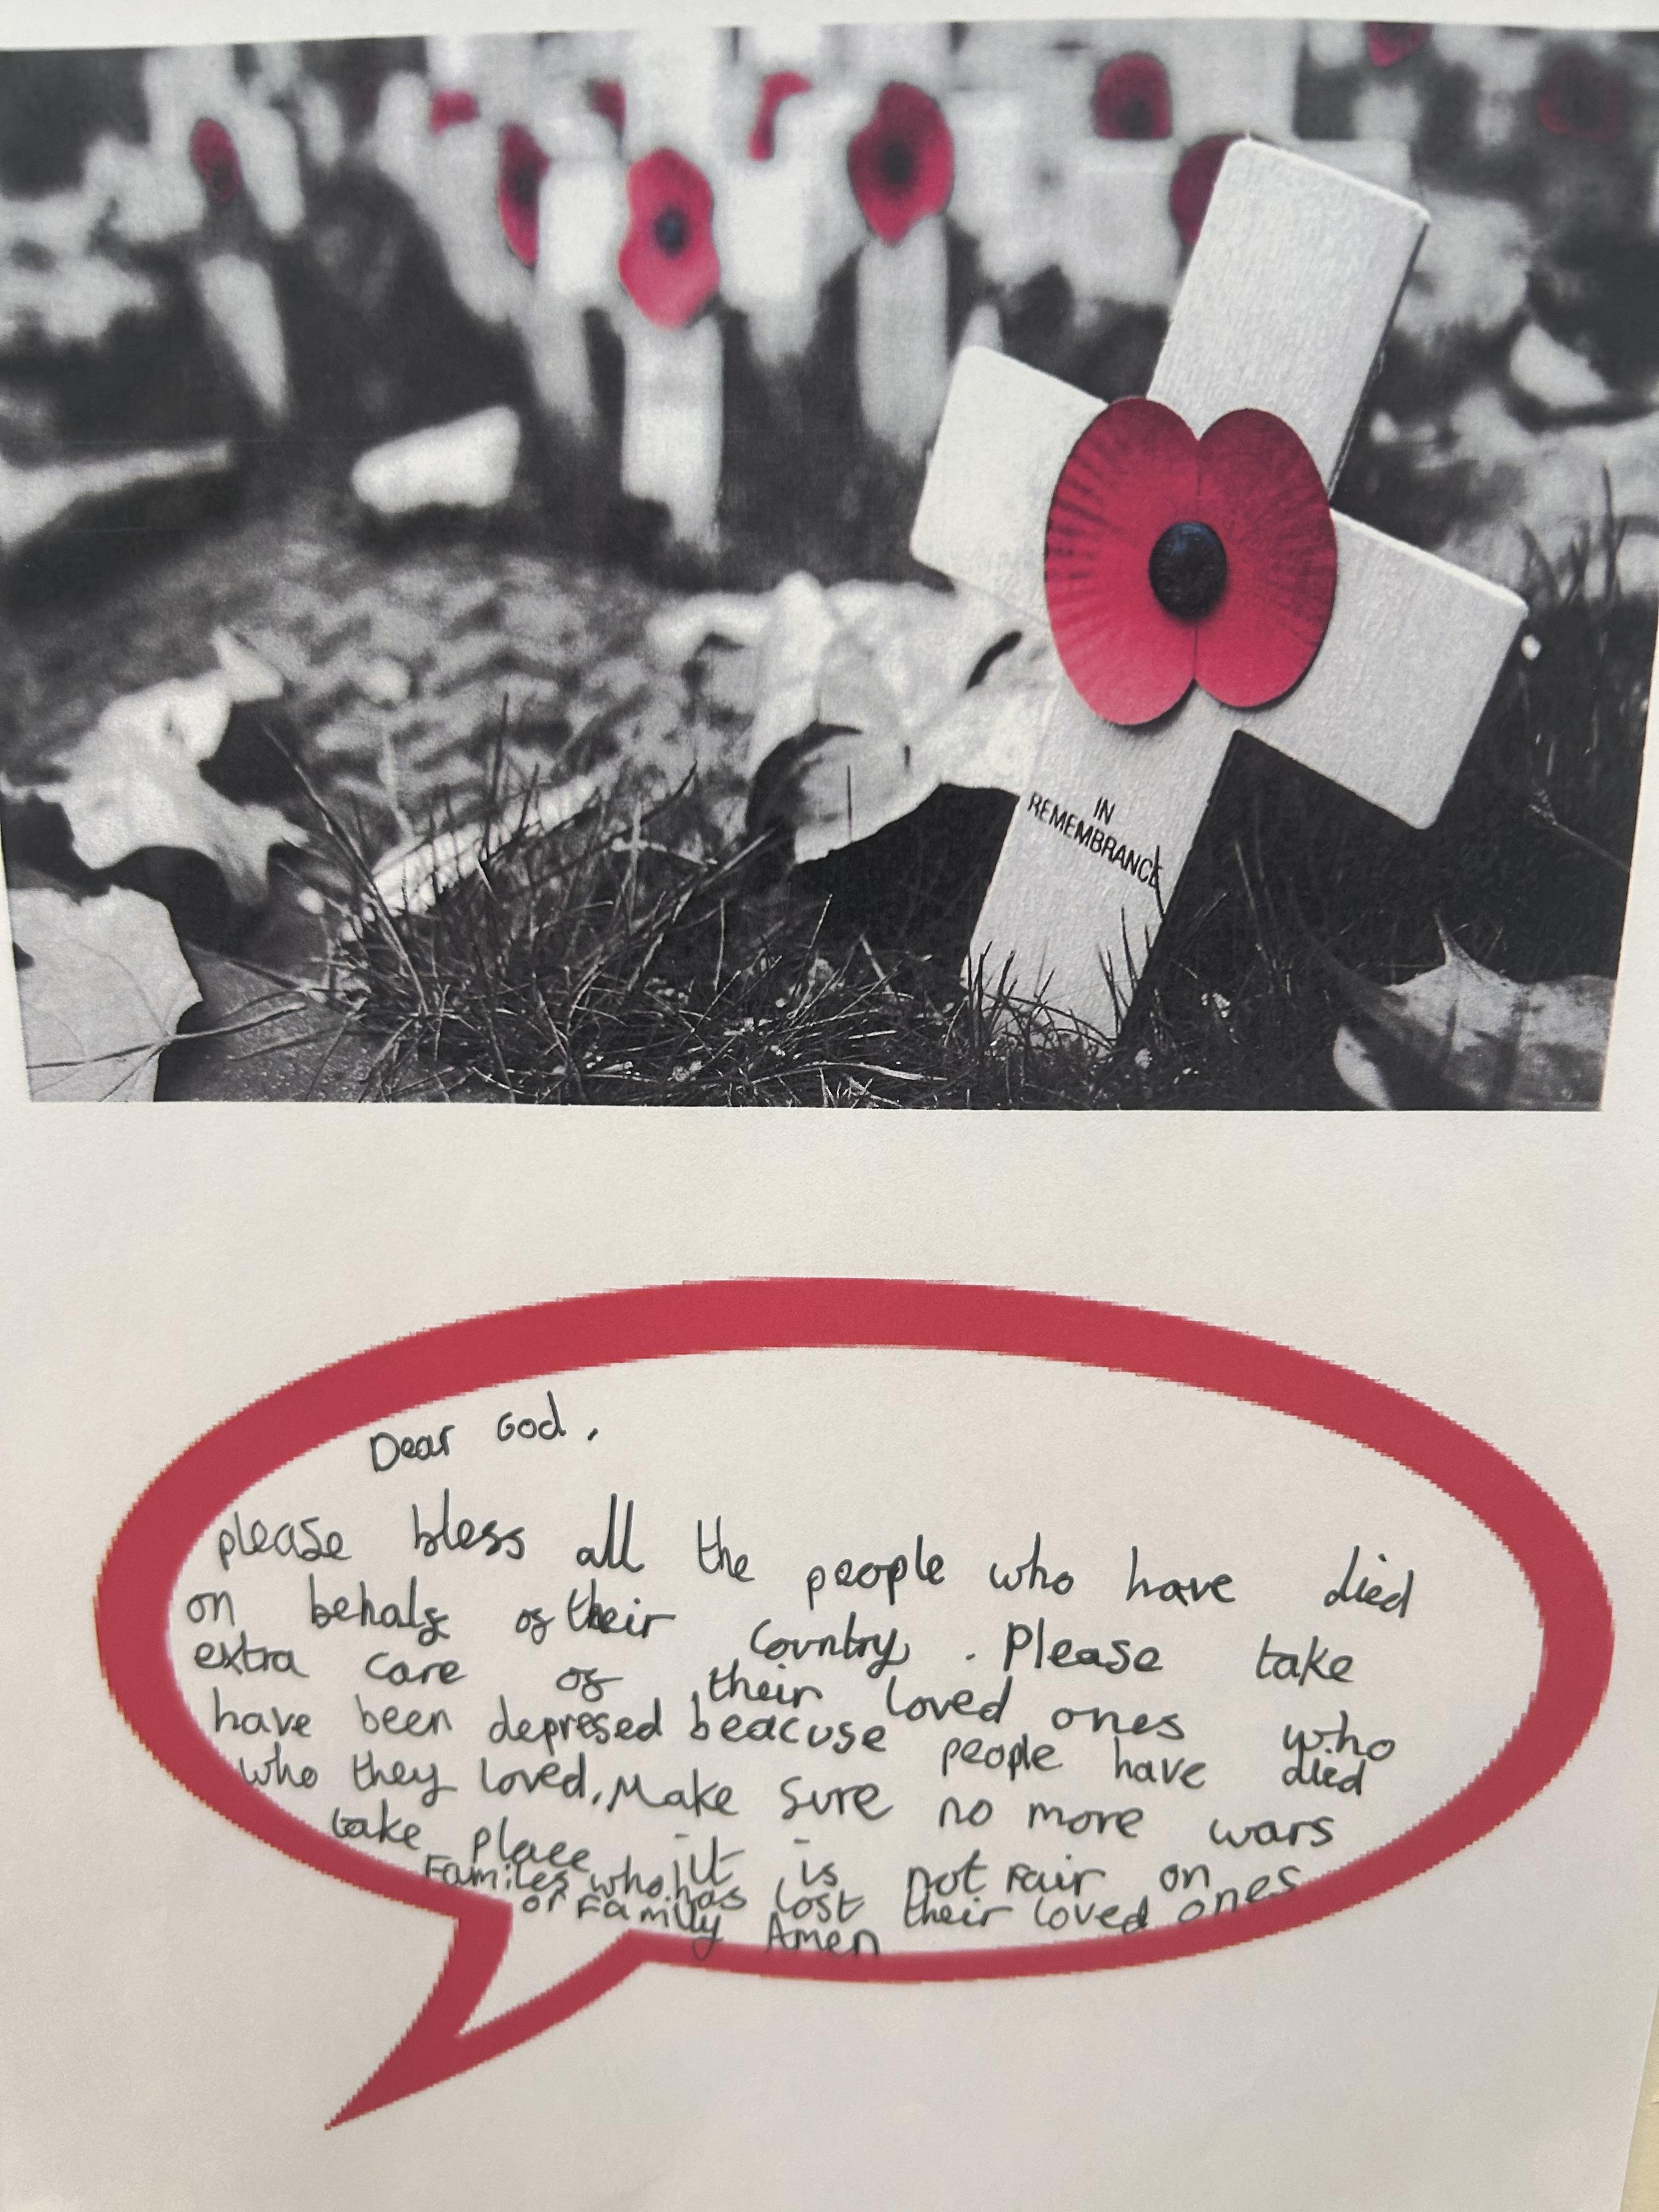 IN
REMEMBRANCE
Dear God,
please bless all the people who have died
on behalf of their Country. Please take
extra care of their loved ones who
have been depresed beacuse people have died
who they loved. Make sure no more wars
take place it is not Fair on
Familes who has lost their loved ones
or Family Amen